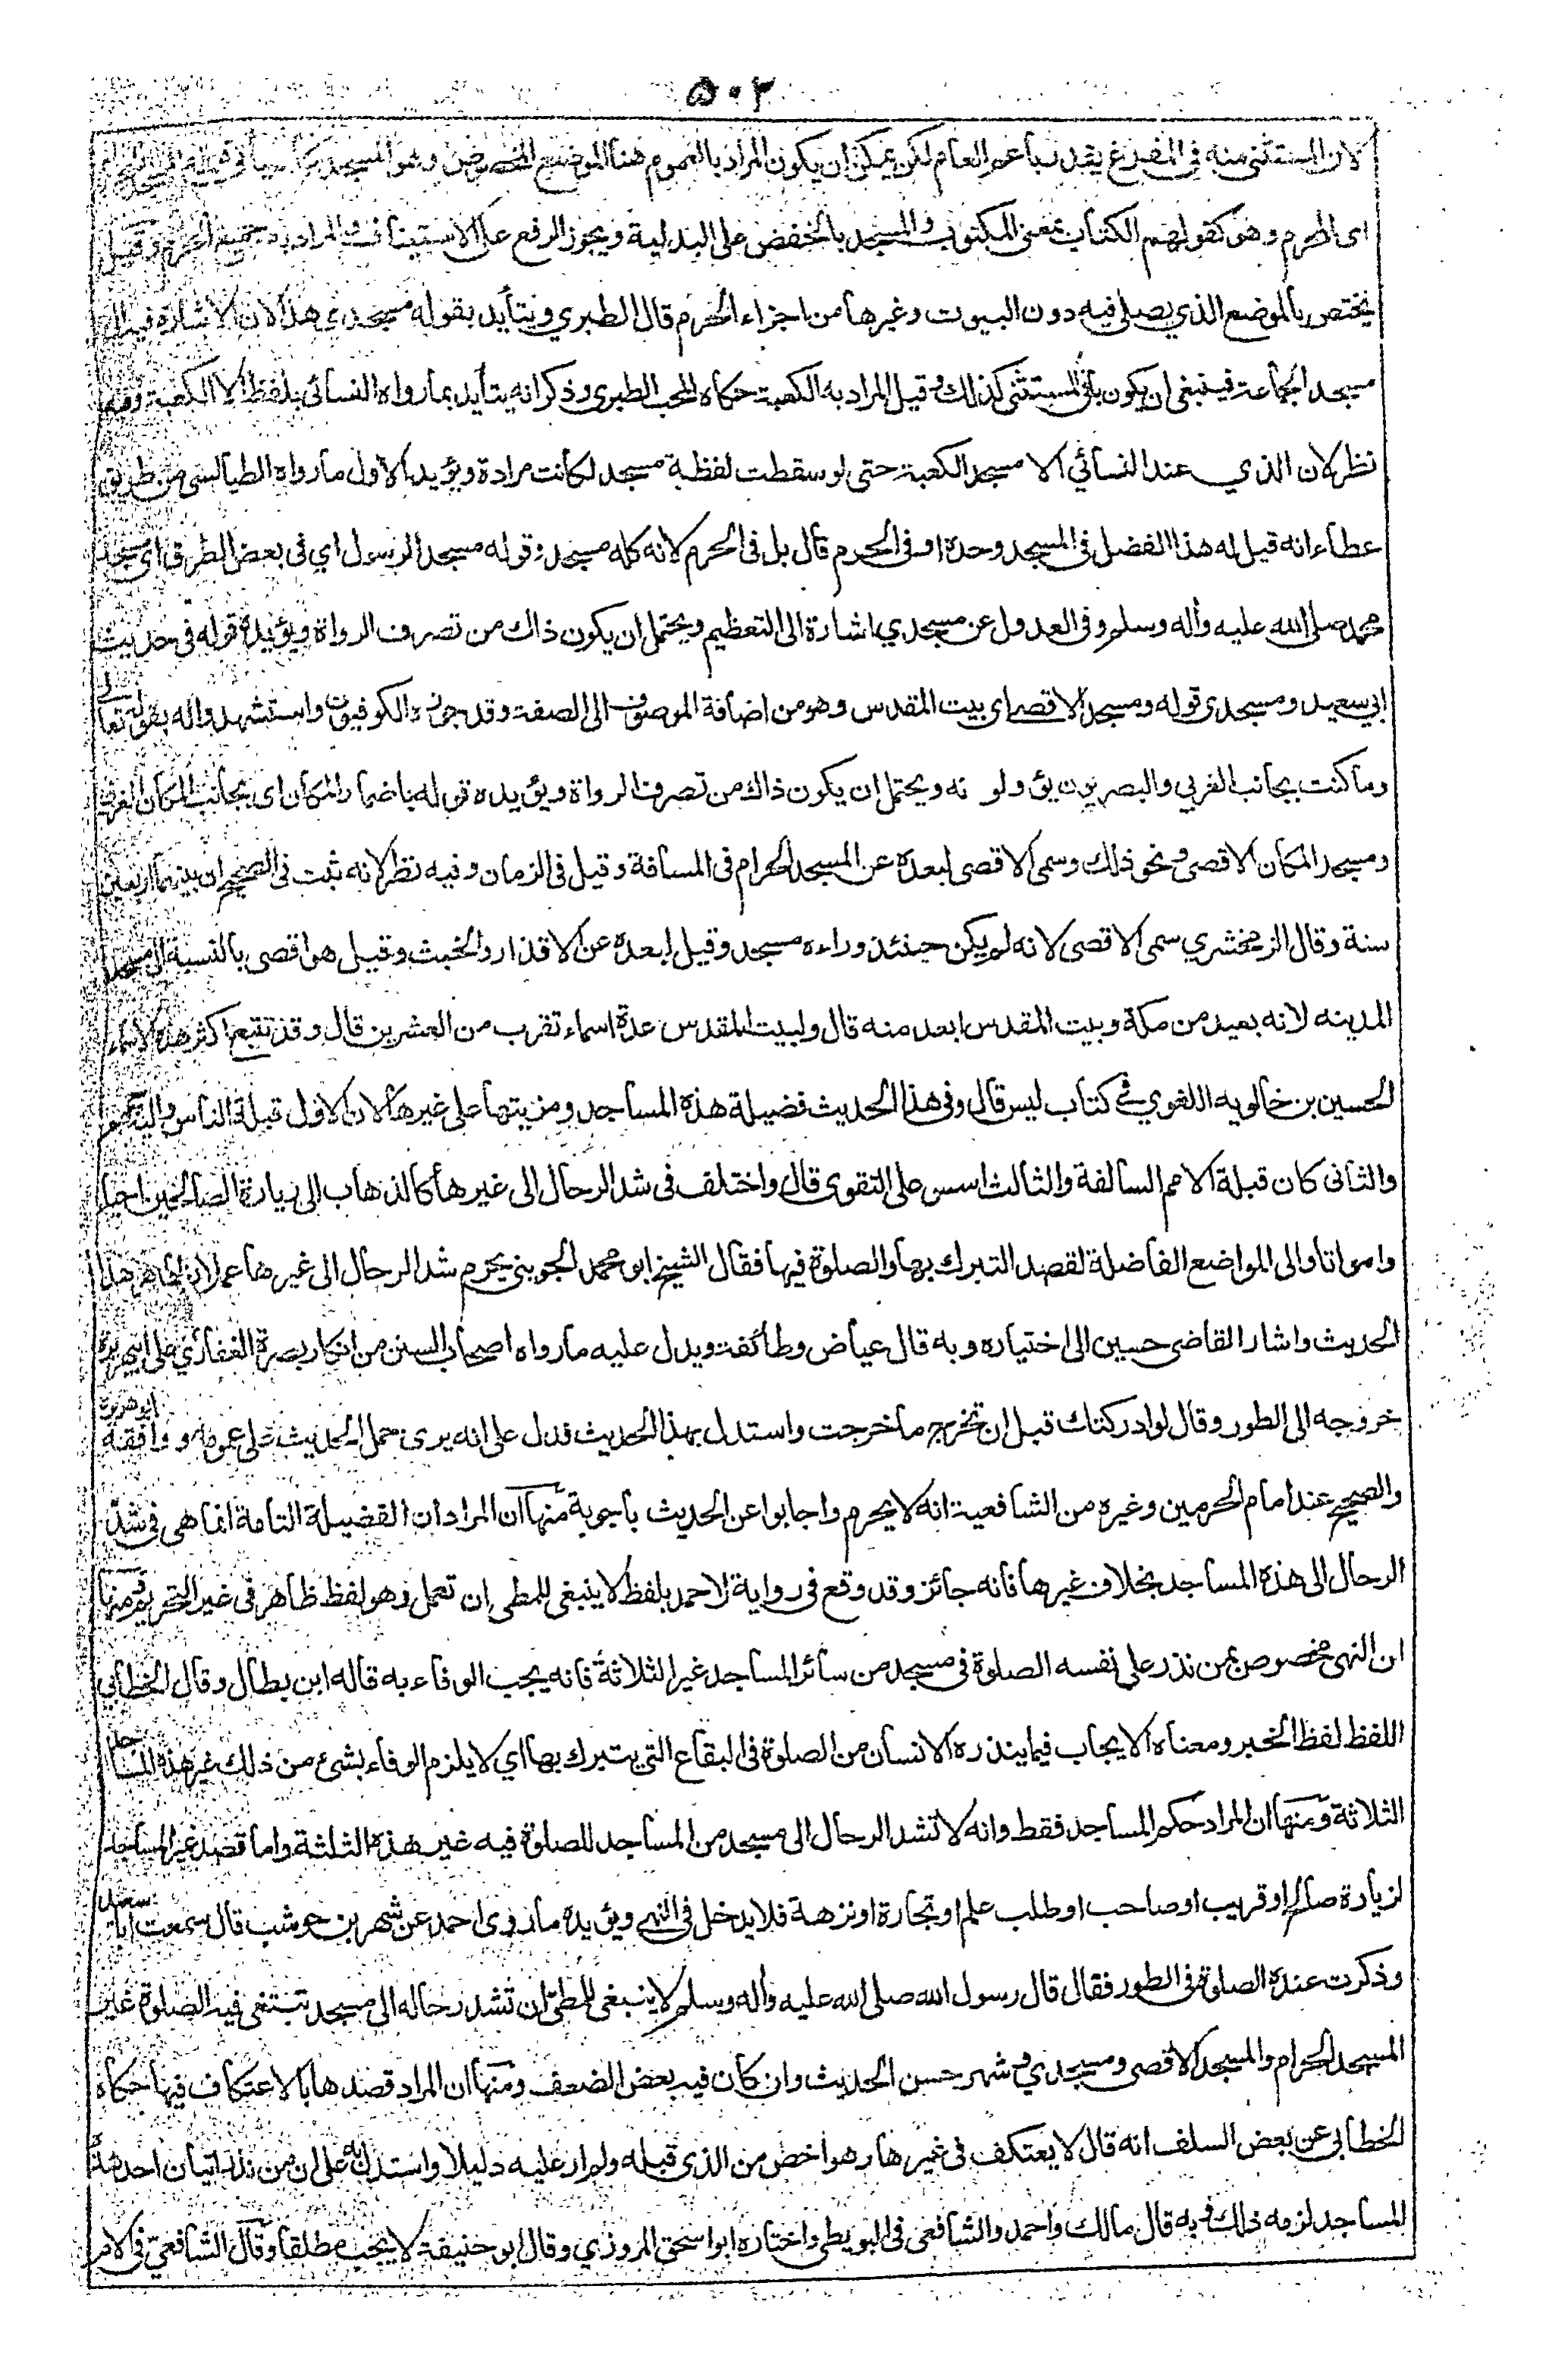 ٥٠٢
لان المستثنى منه فى المفرغ يقدر باعم العام لكن يمكن ان يكون المراد بالعموم هنا الموضع المخصوص وهو المسجد
اى المحرم وهو كقولهم الكتاب بمعنى المكتوب والمسجد بالخفض على البدلية ويجوز الرفع على الاستيناف والمراد به جميع الحرم وقيل
يختص بالموضع الذي يصلى فيه دون البيوت وغيرها من اجزاء الحرم قال الطبري ويتأيد بقوله مسجدي هذا لان الاشارة فيه الى
مسجد الجماعة فينبغى ان يكون باقى المستثنى كذلك وقيل المراد به الكعبة حكاه المحب الطبرى وذكر انه يتأيد بما رواه النسائى بلفظ الا الكعبة وفيه
نظر لان الذي عند النسائي الا مسجد الكعبة حتى لو سقطت لفظة مسجد لكانت مرادة ويؤيد الاول ما رواه الطيالسى من طريق
عطاء انه قيل له هذا الفضل فى المسجد وحده او فى الحرم قال بل فى الحرم لانه كله مسجد وقوله مسجد الرسول اي فى بعض الطرق اى مسجد
محمد صلى الله عليه وأله وسلم وفى العدول عن مسجدي اشارة الى التعظيم ويحتمل ان يكون ذاك من تصرف الرواة ويؤيده قوله فى حديث
ابي سعيد ومسجدى قوله ومسجد الاقصى اى بيت المقدس وهو من اضافة الموصوف الى الصفة وقد جوزه الكوفيون واستشهدوا له بقوله تعالى
وما كنت بجانب الغربي والبصريون يؤولونه ويحتمل ان يكون ذاك من تصرف الرواة ويؤيده قوله باضمار المكان اى بجانب المكان الغربى
ومسجد المكان الاقصى ونحو ذلك وسمى الاقصى لبعده عن المسجد الحرام فى المسافة وقيل فى الزمان وفيه نظر لانه ثبت فى الصحيح ان بينهما اربعين
سنة وقال الزمخشري سمى الاقصى لانه لم يكن حينئذ وراءه مسجد وقيل لبعده عن الاقذار والخبث وقيل هو اقصى بالنسبة الى مسجد
المدينه لانه بعيد من مكة وبيت المقدس ابعد منه قال ولبيت المقدس عدة اسماء تقرب من العشرين قال وقد تتبع اكثر هذه الاسماء
الحسين بن خالويه اللغوي فى كتاب ليس قال وفى هذا الحديث فضيلة هذه المساجد ومزيتها على غيرها لان الاول قبلة الناس واليه حجهم
والثانى كان قبلة الامم السالفة والثالث اسس على التقوى قال واختلف فى شد الرحال الى غيرها كالذهاب الى زيارة الصالحين احياء
وامواتا والى المواضع الفاضلة لقصد التبرك بها والصلوة فيها فقال الشيخ ابو محمد الجويني يحرم شد الرحال الى غيرها عملا بظاهر هذا
الحديث واشار القاضى حسين الى اختياره وبه قال عياض وطائفة ويدل عليه ما رواه اصحاب السنن من انكار بصرة الغفاري على ابى هريرة
خروجه الى الطور وقال لو ادركتك قبل ان تخرج ما خرجت واستدل بهذا الحديث فدل على انه يرى حمل الحديث على عمومه ووافقه ابو هريرة
والصحيح عند امام الحرمين وغيره من الشافعية انه لا يحرم واجابوا عن الحديث باجوبة منها ان المراد ان الفضيلة التامة انما هى فى شد
الرحال الى هذه المساجد بخلاف غيرها فانه جائز وقد وقع فى رواية لاحمد بلفظ لا ينبغى للمطى ان تعمل وهو لفظ ظاهر فى غير التحريم ومنها
ان النهى مخصوص بمن نذر على نفسه الصلوة فى مسجد من سائر المساجد غير الثلاثة فانه يجب الوفاء به قاله ابن بطال وقال الخطابي
اللفظ لفظ الخبر ومعناه الايجاب فيما ينذره الانسان من الصلوة فى البقاع التى يتبرك بها اي لا يلزم الوفاء بشئ من ذلك غير هذه المساجد
الثلاثة ومنها ان المراد حكم المساجد فقط وانه لا تشد الرحال الى مسجد من المساجد للصلوة فيه غير هذه الثلثة واما قصد غير المساجد
لزيارة صالح او قريب او صاحب او طلب علم او تجارة او نزهة فلا يدخل فى النهى ويؤيده ما روى احمد عن شهر بن حوشب قال سمعت ابا سعيد
وذكرت عنده الصلوة فى الطور فقال قال رسول الله صلى الله عليه وأله وسلم لا ينبغى للمطى ان تشد رحاله الى مسجد تبتغى فيه الصلوة غير
المسجد الحرام والمسجد الاقصى ومسجدي وشهر حسن الحديث وان كان فيه بعض الضعف ومنها ان المراد قصدها بالاعتكاف فيها حكاه
الخطابى عن بعض السلف انه قال لا يعتكف فى غيرها وهو اخص من الذى قبله ولم ار عليه دليلا واستدل به على ان من نذر اتيان احد هذه
المساجد لزمه ذلك وبه قال مالك واحمد والشافعى فى البويطى واختاره ابو اسحق المروزي وقال ابو حنيفة لا يجب مطلقا وقال الشافعى فى الام